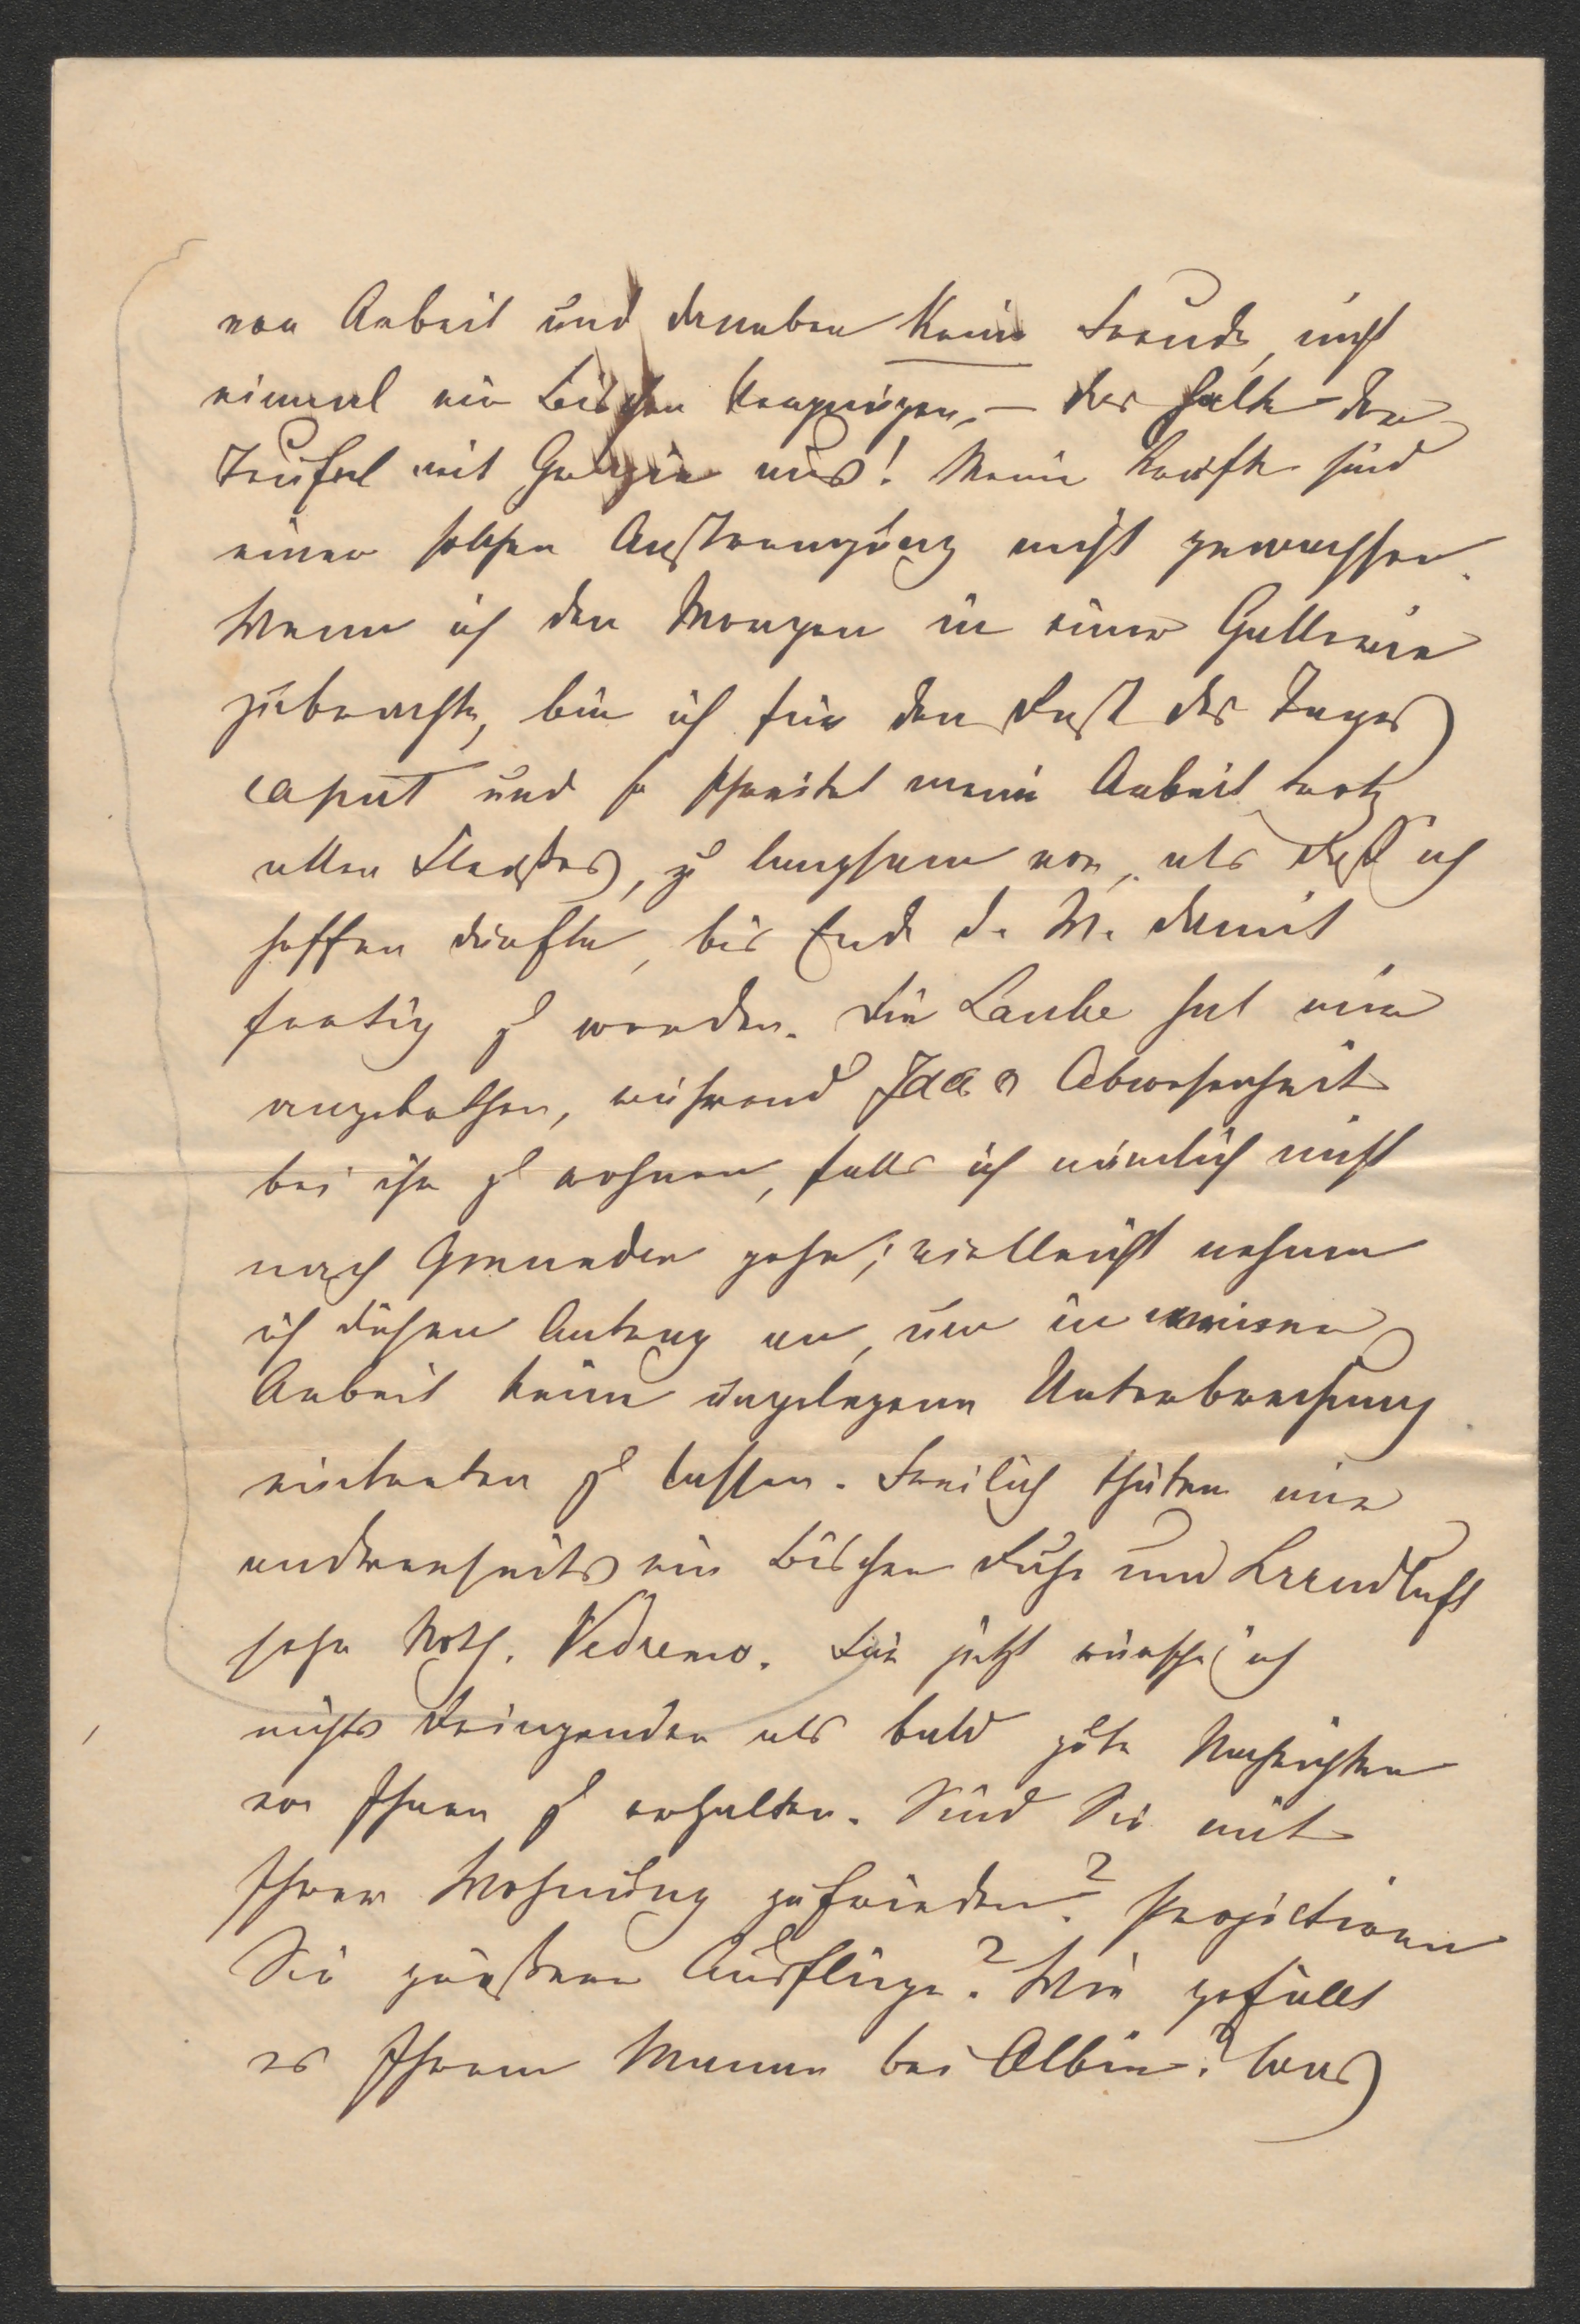 von Arbeit und daneben keine Freude, nicht
einmal ein Bischen Vergnügen, – das halte der
Teufel mit Grazie aus! Meine Kräfte sind
einer solchen Anstrengung nicht gewachsen.
Wenn ich den Morgen in einer Gallerie
zubrachte, bin ich für den Rest des Tages
caput und so schreitet meine Arbeit trotz
allen Fleißes, zu langsam vor, als daß ich
hoffen dürfte, bis Ende d. M. damit
fertig zu werden. Die Laube hat mir
angebothen, während Idas Abwesenheit
bei ihr zu wohnen, falls ich nämlich nicht
nach Gmunden gehe; vielleicht nehme
ich diesen Antrag an, um in meiner
Arbeit keine ungelegene Unterbrechung
eintreten zu lassen. Freilich thäten mir
andrerseits ein Bischen Ruhe und Landluft
sehr Noth. Vedremo. Für jetzt wünsche ich
nichts dringender als bald gute Nachrichten
von Ihnen zu erhalten. Sind Sie mit
Ihrer Wohnung zufrieden? Projectiren
Sie größere Ausflüge? Wie gefällt
es Ihrem Manne bei Albin? Was